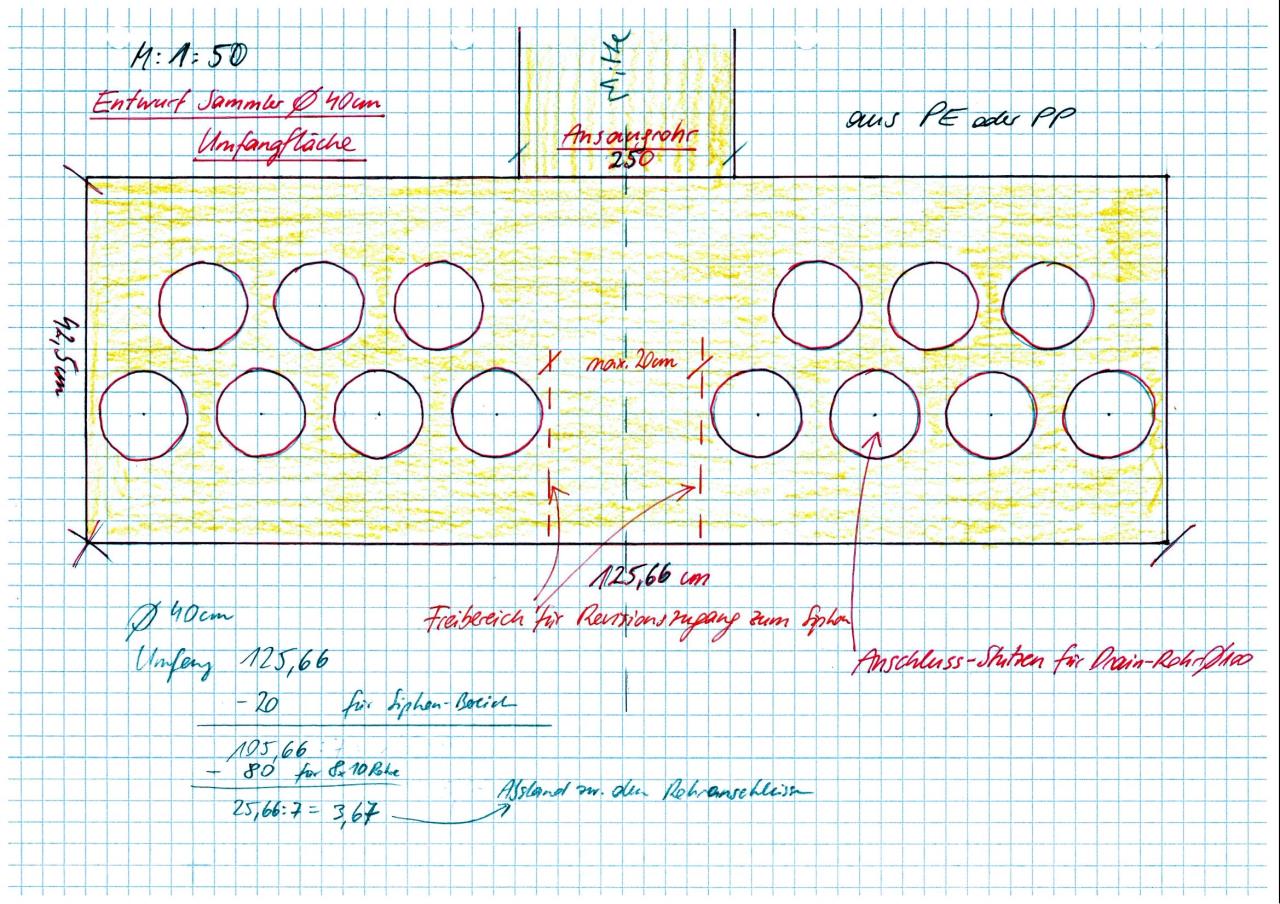 M: 1:50
Entwurf Sammler Ø 40cm
Umfangfläche
Mitte
Ansaugrohr
250
aus PE oder PP
42,5cm
max. 20cm
125,66 cm
Freibereich für Revisionszugang zum Siphon
Anschluss-Stutzen für Drain-Rohr Ø100
Ø 40cm
Umfang 125,66
- 20 für Siphon-Bereich
105,66
- 80 für 8x10 Rohre
25,66:7 = 3,67
Abstand zw. den Rohranschlüssen